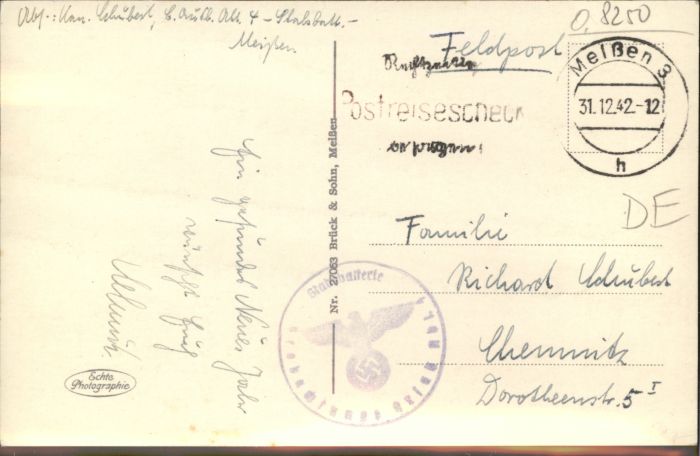 Abs.: Kan. Schubert, E. Autb. Abt. 4 - Stabsbatt. -
Meißen
0,8250
Feldpost
Meißen 3
31.12.42.-12
h
Rechtzeitig
Postreisescheck
besorgen!
DE
Familie
Richard Schubert
Chemnitz
Dorotheenstr. 5 I
Nr. 27063 Brück & Sohn, Meißen
Ein gesundes Neues Jahr
wünscht Euch
Echte
Photographie